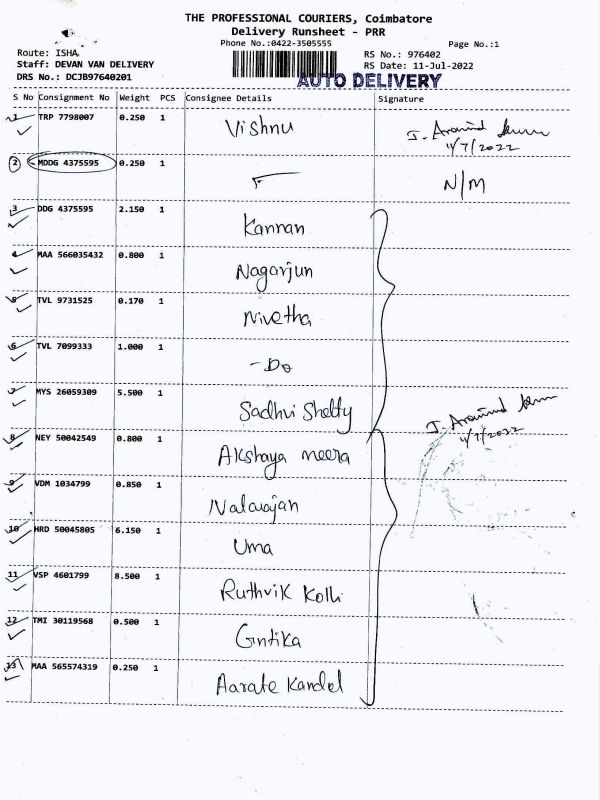 THE PROFESSIONAL COURIERS, Coimbatore
Delivery Runsheet - PRR
Phone No.:0422-3505555 Page No.:1
Route: ISHA RS No.: 976402
Staff: DEVAN VAN DELIVERY RS Date: 11-Jul-2022
DRS No.: DCJB97640201 AUTO DELIVERY
S No Consignment No Weight PCS Consignee Details Signature
1 TRP 7798007 0.250 1 Vishnu J. Aravind
11/7/2022
2 MDDG 4375595 0.250 1 N/M
3 DDG 4375595 2.150 1 Kannan
4 MAA 566035432 0.800 1 Nagarjun
5 TVL 9731525 0.170 1 Nivetha
6 TVL 7099333 1.000 1 -Do
7 MYS 26059309 5.500 1 Sadhvi Shetty J. Aravind
11/7/2022
8 NEY 50042549 0.800 1 Akshaya meera
9 VDM 1034799 0.850 1
10 HRD 50045805 6.150 1 Uma
11 VSP 4601799 8.500 1 Ruthvik Kolli
12 TMI 30119568 0.500 1
13 MAA 565574319 0.250 1 Aarate Kandel